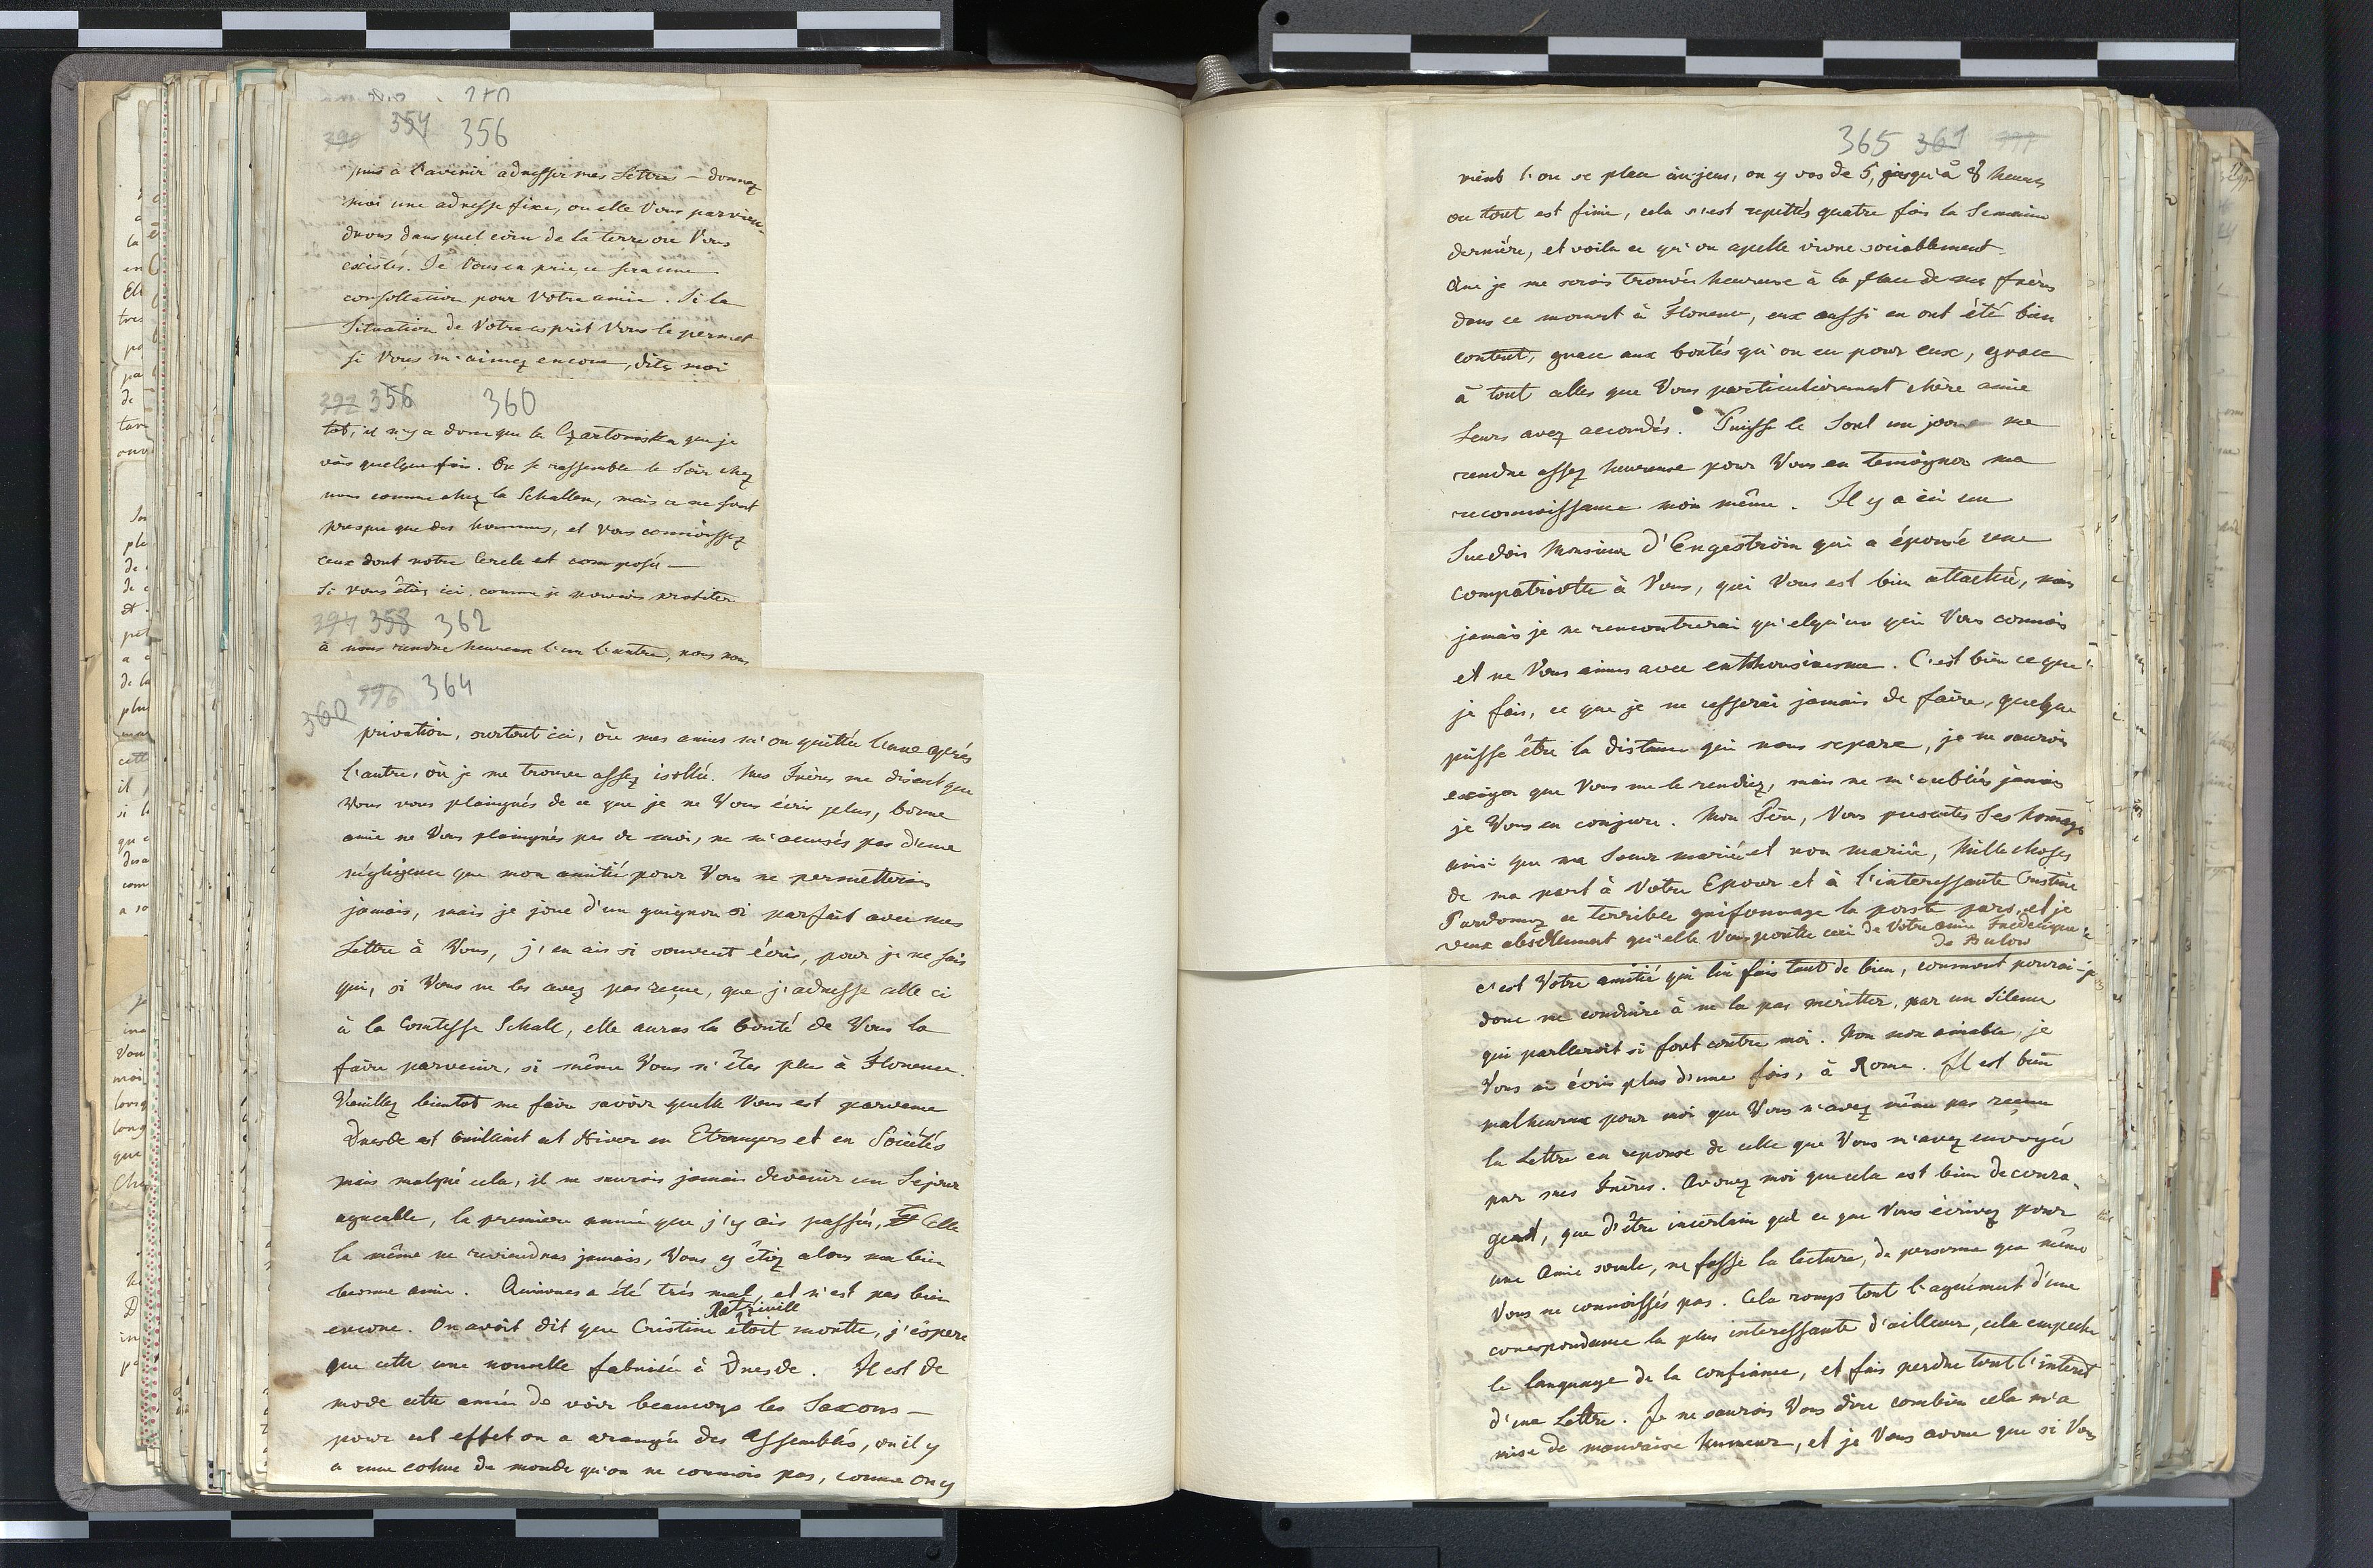 390 354 356
puis à l'avenir adresser mes Lettres — donnez
moi une adresse fixe, ou elle Vous parvien-
drons dans quel coin de la terre ou Vous
existés. Je Vous en prie, ce sera une
consollation pour Votre amie. Si la
Situation de Votre esprit Vous le permet
si Vous m'aimez encore, dites moi
392 356 360
tot, il n'y a donc que la Czartoriska que je
vois quelque fois. On se rassemble le Soir chez
nous comme chez la Schallen, mais ce ne sont
presque que des hommes, et Vous connoissez
ceux dont notre Cercle est composé —
Si vous êtiez ici, comme je pourrois profiter
394 358 362
à nous rendre heureux l'un l'autre, nous nous
360 396 364
privation, surtout ici, où mes amies m'on quittée l'une après
l'autre, où je me trouve assez isollée. Mes Frères me disent que
Vous vous plaignés de ce que je ne Vous écris plus, bonne
amie ne Vous plaignés pas de moi, ne m'accusés pas d'une
négligence que mon amitié pour Vous ne permetterois
jamais, mais je joue d'un guignon si parfait avec mes
Lettre à Vous, j'en ais si souvent écris, pour je ne sais
qui, si Vous ne les avez pas reçue, que j'adresse celle ci
à la Comtesse Schall, elle auras la bonté de Vous la
faire parvenir, si même Vous n'êtes plus à Florence.
Veuillez bientot me faire savoir quelle Vous est parvenue
Dresde est brilliant cet Hiver en Etrangers et en Sociétés
mais malgré cela, il ne saurois jamais devenir un Sejour
agreable, la premiere année que j'y ais passés, Celle
la même ne reviendras jamais, Vous y êtiez alors ma bien
bonne amie. Quinones a été très mal, et n'est pas bien
encore. On avoit dit que Cristine étoit mortte, j'éspere
que cette une nouvelle fabrisée à Dresde. Il est de
mode cette année de voir beaucoup les Saxons —
pour cet effet on a arangée des Assemblés, ou il y
a une cohue du monde qu'on ne connois pas, comme on y
365 361 397
vient l'on se place au jeux, on y vas de 5, jusqu'à 8 heures
ou tout est finie, cela s'est repettés quatre fois la Semaine
dernière, et voila ce qu'on apelle vivre sociablement.
Que je me serois trouvée heureuse à la place de mes frères
dans ce moment à Florence, eux aussi en ont été bien
content, grace aux bontés qu'on eu pour eux, grace
à tout celles que Vous particulierement chère amie
Leurs avez accordés. Puisse le Sort un jour me
rendre assez heureuse pour Vous en temoigner ma
reconnoissance moi même. Il y a ici un
Suedois Monsieur d'Engeström qui a épousé une
compatriotte à Vous, qui Vous est bien attachée, mais
jamais je ne rencontrerai qu'elqu'un qui Vous connois
et ne Vous aimes avec enthousiasme. C'est bien ce que
je fais, ce que je ne cesserai jamais de faire, quelque
puisse être la distance qui nous separe, je ne saurois
exiger que Vous me le rendiez, mais ne m'oubliés jamais
je Vous en conjure. Mon Père, Vous presentes Ses homages
ainsi que ma Soeur mariée et non mariée, Mille choses
de ma part à Votre Epoux et à l'interessante Cristine
Pardonnez ce terrible grifonnage la poste pars, et je
veux absollument qu'elle Vous portte ceci de Votre amie Frederique
de Bulow
c'est Votre amitié qui lui fais tant de bien, comment pourai-je
donc me conduire à ne la pas meritter, par un Silence
qui parlleroit si fort contre moi. Non non aimable, je
Vous ai écris plus d'une fois, à Rome. Il est bien
malheureux pour moi que Vous n'avez même pas reçue
la Lettre en reponse de celle que Vous m'avez envoyée
par mes Frères. Avouez moi que cela est bien decoura-
geant, que d'être incertain qu'e ce que Vous écrivez pour
une Amie seule, ne fasse la lecture, de personne que même
Vous ne connoissés pas. Cela romps tout l'agrément d'une
corespondance la plus interessante d'ailleur, cela empeche
le language de la confiance, et fais perdre tout l'interêt
d'une Lettre. Je ne saurois Vous dire combien cela m'a
mise de mauvaise humeur, et je Vous avoue que si Vous